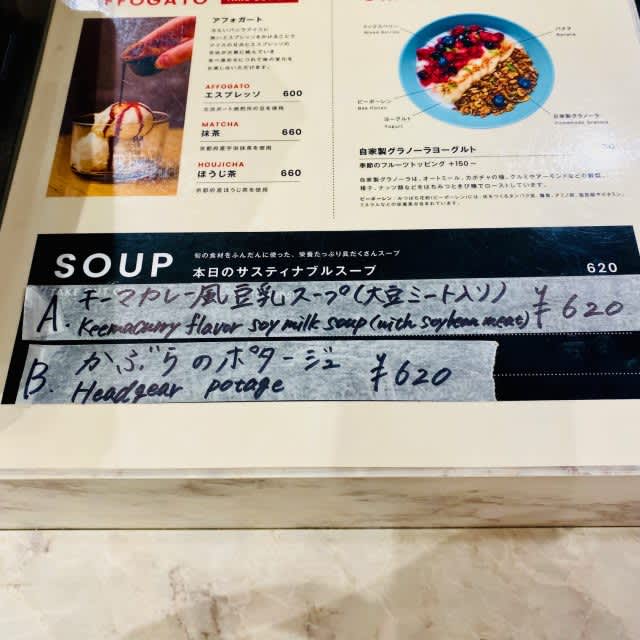 AFFOGATO
アフォガート
AFFOGATO
エスプレッソ 600
MATCHA
抹茶 660
HOUJICHA
ほうじ茶 660
ミックスベリー
Mixed Berries
バナナ
Banana
ビーポーレン
Bee Pollen
ヨーグルト
Yogurt
自家製グラノーラ
Homemade Granola
自家製グラノーラヨーグルト
季節のフルーツトッピング +150〜
SOUP
旬の食材をふんだんに使った、栄養たっぷり具だくさんスープ
本日のサスティナブルスープ 620
A. キーマカレー風豆乳スープ(大豆ミート入り) ¥620
Keemacurry flavor soy milk soup (with soybean meat)
B. かぶらのポタージュ ¥620
Headgear potage